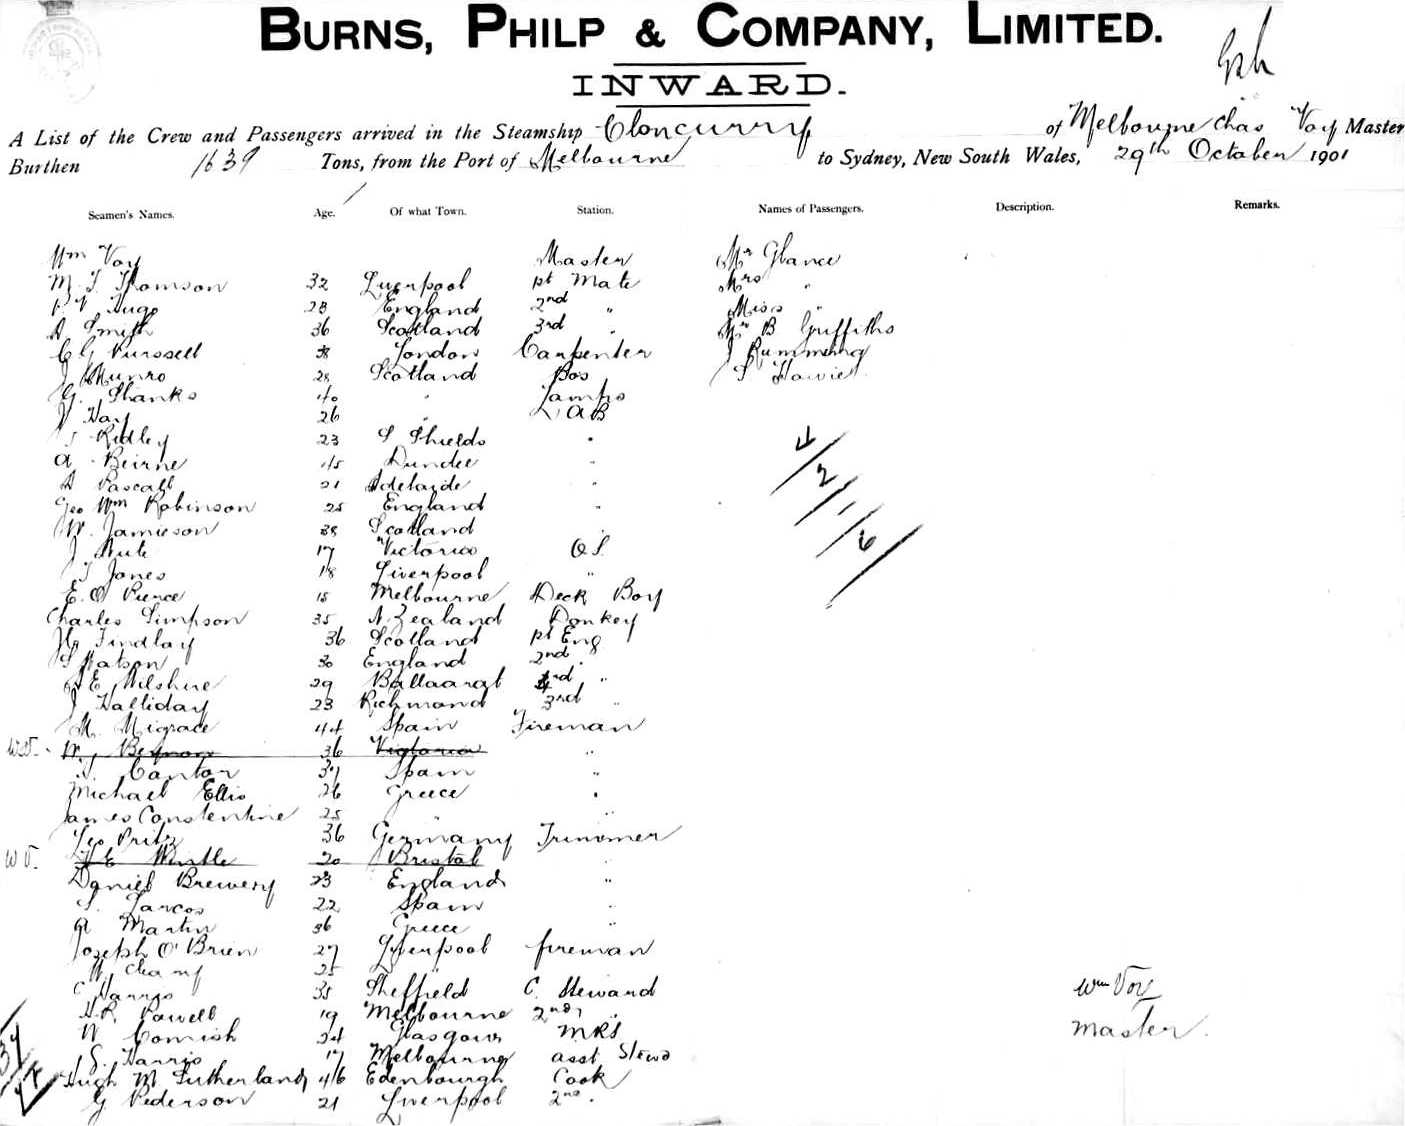 BURNS, PHILP & COMPANY, LIMITED.
INWARD.
A List of the Crew and Passengers arrived in the Steamship Cloncurry of Melbourne Chas Voy Master
Burthen 1639 Tons, from the Port of Melbourne to Sydney, New South Wales, 29th October 1901
Seamen's Names. Age. Of what Town. Station. Names of Passengers. Description. Remarks.
Wm Voy Master Mr Glance
M. J. Thomson 32 Liverpool 1st Mate Mrs "
Hugo 28 England 2nd " Miss "
A Smith 36 Scotland 3rd " Mr B Griffiths
C G Purssell 38 London Carpenter J Rumming
J Munro 28 Scotland Bos S Howie
G. Shanks 40 " Lamps
J Hay 26 " A B
J Ridley 23 S Shields "
A Beirne 45 Dundee "
A Pascall 21 Adelaide "
Geo Wm Robinson 25 England "
W. Jamieson 38 Scotland "
J Bute 17 Victoria O S.
J Jones 18 Liverpool "
E. O Pierce 15 Melbourne Deck Boy
Charles Simpson 35 N. Zealand Donkey
Findlay 36 Scotland 1st Eng
S Watson 30 England 2nd "
A E Wilshire 29 Ballaarat 3rd "
J Halliday 23 Richmond 3rd "
M. Migrace 44 Spain Fireman
W. Beynon 36 Victoria "
J. Cantor 37 Spain "
Michael Ellis 26 Greece "
James Constentine 25 " "
Geo Pritz 36 Germany Trimmer
H E Wintle 20 Bristol "
Daniel Brewery 23 England "
S. Larcos 22 Spain "
A Martin 36 Greece "
Joseph O'Brien 27 Liverpool fireman
W Chany 25 "
C Harris 35 Sheffield C. Steward
H. R. Powell 19 Melbourne 2nd "
W Cornish 24 Glasgow MRS
S. Harris 17 Melbourne asst Stewd
Hugh M Sutherland 46 Edenbourgh Cook
G Pederson 21 Liverpool 2nd "
4/2/1/6
Wm Voy
Master